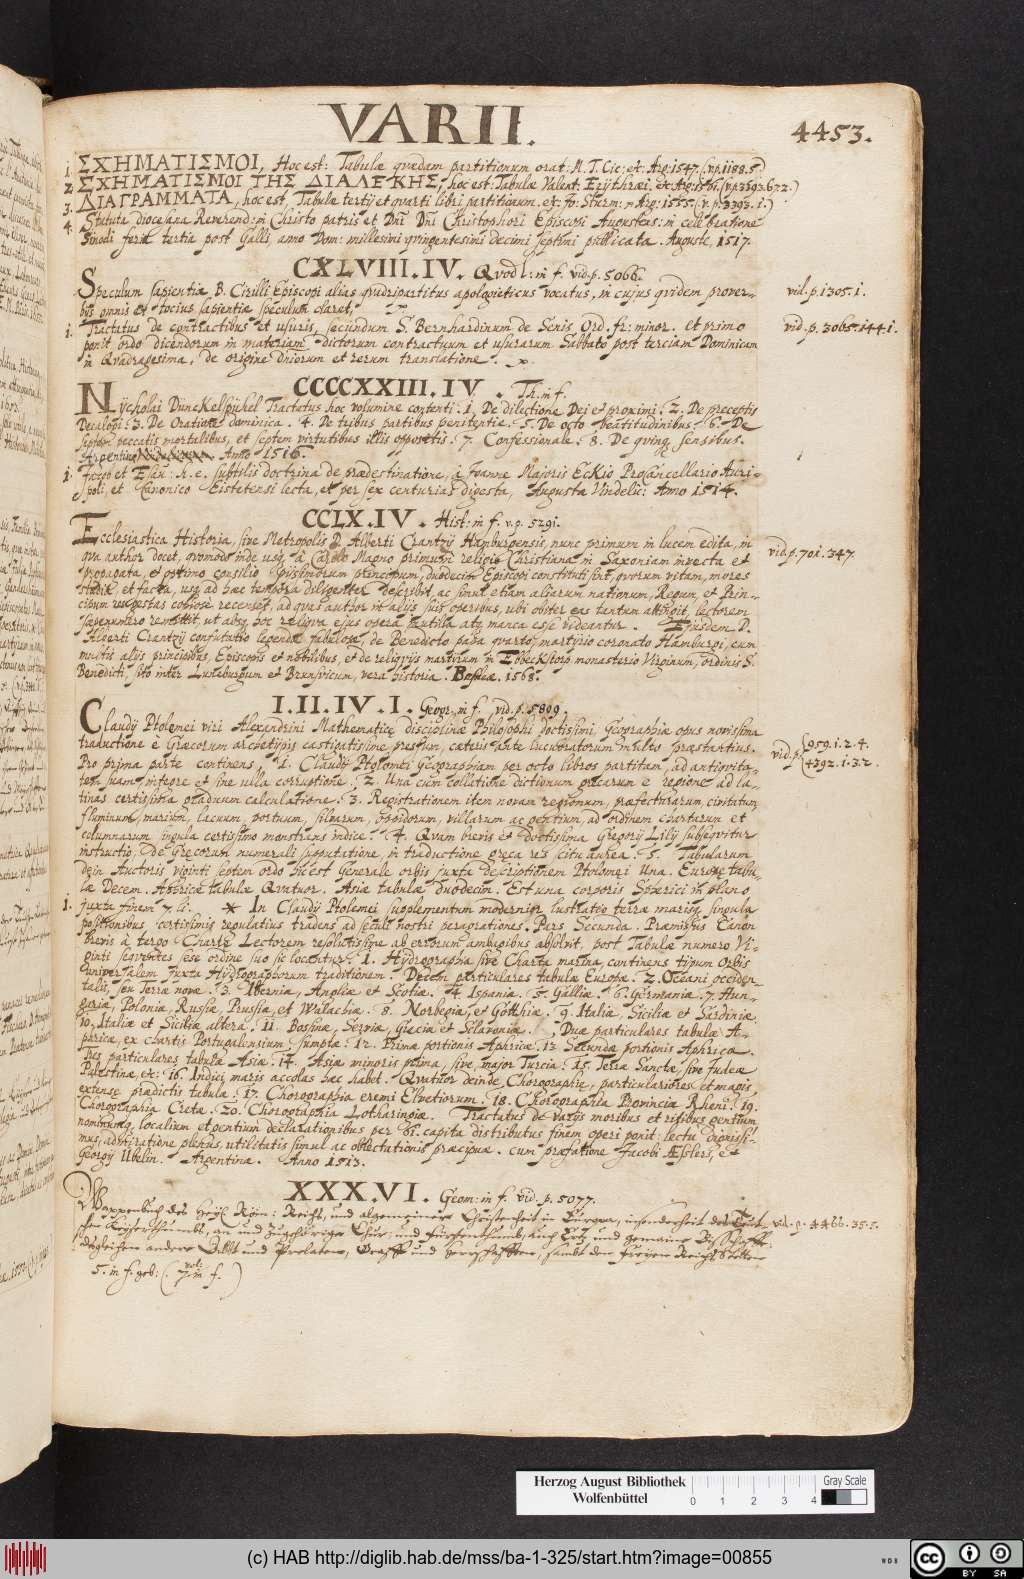 VARII.
4453.
1. ΣΧΗΜΑΤΙΣΜΟΙ, Hoc est: Tabulæ quædam partitionum orat: M. T. Cic: et: Arg: 1547. (v.p. 1188.5.)
2. ΣΧΗΜΑΤΙΣΜΟΙ ΤΗΣ ΔΙΑΛΕΚΗΣ, hoc est: Tabulæ Valent. Erythræi, etc Arg: 1551. (v.p. 3593.672.)
3. ΔΙΑΓΡΑΜΜΑΤΑ, hoc est, Tabulæ tertij et quarti libri partitionum. etc: Jo: Sturm: Arg: 1555. (v. p. 3393. 1.)
4. Statuta diocesana Reverend: in Christo patris et Dnĩ Dnĩ Christophori Episcopi Augustens: in celebratione
Sinodi feria tertia post Galli, anno Dom: millesimi quingentesimi decimi septimi publicata. Auguste, 1517.
CXLVIII. IV. Quodl: in f. vid. p. 5066.
Speculum sapientiæ B. Cirilli Episcopi alias quadripartitus apologieticus vocatus, in cujus quidem prover-
bijs omnis et tocius sapientiæ speculum claret,
vid. p. 1305. 1.
1. Tractatus de contractibus et usuris, secundum S. Bernhardinum de Senis Ord. fr: minor. et primo
ponit ordo dicendorum in materiam dictorum contractuum et usurarum Sabbato post terciam Dominicam
in Quadragesima, de origine dniorum et rerum translatione.
vid. p. 3065. 144 1.
CCCCXXIII. IV. Th. in f.
Nycholai Dünckelspühel Tractatus hoc volumine contenti: 1. De dilectione Dei et proximi. 2. De preceptis
Decalogi: 3. De Oratione dominica. 4. De tribus partibus penitentie. 5. De octo beatitudinibus 6. De
septem peccatis mortalibus, et septem virtutibus illis oppositis: 7. Confessionale: 8. De quinq sensibus.
Argentinæ Anno 1516.
1. Jacob et Esau: h. e. subtilis doctrina de prædestinatione, à Joanne Majoris Eckio Procancellario Auri-
poli, et Canonico Eistetensi lecta, et per sex centurias digesta, Augusta Vindelic: Anno 1514.
CCLX. IV. Hist: in f. v.p. 5291.
Ecclesiastica Historia, sive Metropolis D. Alberti Crantzij Hamburgensis, nunc primum in lucem edita, in
qva author docet, quomodo inde usq à Carolo Magno primum religio Christiana in Saxoniam invecta et
propagata, et optimo consilio ipsissimorum principum, duodecim Episcopi constituti sint, quorum vitam, mores
studia, et facta, usq ad hæc tempora diligenter describit, ac simul etiam aliarum nationum, Regum, et Prin-
cipum vetustas copiose recenset, ad quas author in alijs suis operibus, ubi obiter eas tantum attingit, lectorem
sæpenumero remittit, ut absq hoc reliqua ejus opera mutila atq manca esse videantur. Eiusdem D.
Alberti Crantzij confutatio legendæ fabulosæ, de Benedicto papa quarto, martyrio coronato Hamburgi, cum
multis alijs principibus, Episcopis et nobilibus, et de religijs martyrum in Ebbeckstorp monasterio Virginum, ordinis S.
Benedicti, sito inter Luneburgum et Brunsvicum, vera historia. Basileæ. 1568.
vid. p. 701. 347.
I. II. IV. I. Geogr: in f. vid. p. 5809.
Claudij Ptolemei viri Alexandrini Mathematicę disciplinæ Philosophi doctissimi, Geographiæ opus novissima
traductione è Græcorum archetypis castigatissime pressum, cæteris ante lucubratorum multo præstantius.
Pro prima parte continens, 1. Claudij Ptolomei Geographiam per octo libros partitam, ad antiqvita-
tem suam, integre et sine ulla corruptione. 2. Una cum collatione dictionum grecarum è regione ad la-
tinas certissima graduum calculatione. 3. Registrationem item novam regionum, præfecturarum, civitatum
fluminum, marium, lacuum, portuum, silvarum, oppidorum, villarum ac gentium, ad ordinem chartarum et
columnarum singula certissimo monstrans indice. 4. Quam brevis et doctissima Gregorij Lilij subseqvitur
instructio, De Grecorum numerali supputatione, in traductione greca res scitu aurea. 5. Tabularum
dein Auctoris viginti septem ordo hic est Generale orbis juxta descriptionem Ptolomæi Una. Europæ tabu-
læ Decem. Africæ tabulæ Qvatuor. Asiæ tabulæ duodecim. Est una corporis Spærici in plano
juxta finem 7. li.
vid. p. { 959. 1. 2. 4.
4392. 1. 3. 2.
1. * In Claudij Ptolemei supplementum modernior lustratio terræ marisq singula
positionibus certissimis regulatius tradens ad seculi nostri peragrationes. Pars Secunda. Præmissus Canon
brevis à tergo Chartę Lectorem resolutissime ab errorum ambagibus absolvit, post Tabulæ numero Vi-
ginti sequentes sese ordine suo sic locentur. 1. Hydrographia sive Charta marina continens tipum Orbis
universalem juxta Hydrographorum traditionem. Decem particulares tabulæ Europæ. 2. Oceani occiden-
talis, seu Terræ novæ. 3. Ibernia, Angliæ et Scotiæ. 4. Ispania. 5. Galliæ. 6. Germania. 7. Hun-
garia, Polonia, Russia, Prussia, et Walachia. 8. Norbegia, et Gotthia. 9. Italia, Siciliæ et Sardiniæ.
10. Italiæ et Siciliæ altera. 11. Bossinæ, Servia, Græcia et Sclavonia. Duæ particulares tabulæ A-
phricæ, ex chartis Portugalensium sumptæ: 12. Prima portionis Aphricæ. 13. Secunda portionis Aphricæ.
Tres particulares tabulæ Asiæ. 14. Asiæ minoris prima, sive major Turcia: 15. Terra Sancta, sive Judea
Palestinæ, etc: 16. Indici maris accolas hæc habet. Qvatuor deinde Chorographię, particulariores et magis
extensę prædictis tabula. 17. Chorographia eremi Elvetiorum: 18. Chorographia Provincia Rheni: 19.
Chorographia Cretæ. 20. Chorographia Lotharingiæ. Tractatus de varijs moribus et ritibus gentium
nominumq, localium et gentium declarationibus per 61. capita distributus finem operi ponit: lectu dignissi-
mus, admiratione plenus, utilitatis simul ac oblectationis præcipuæ. cum præfatione Jacobi Æsleri, et
Georgij Ubelin. Argentinæ. Anno 1513.
XXX. VI. Geom: in f. vid. p. 5077.
Wappenbuch des Heyl. Röm: Reichs, und algemeiner Christenheit in Europa, insonderheit des Teut-
schen Keyserthumbs,
desgleichen anderer Stifft und Prelaten, Graff und Herrschafften, sambt den freyen Reichs Stetten
vid. p. 4466. 35. 5.
5. in f. geb: (vol: 7. in f.)
Herzog August Bibliothek
Wolfenbüttel
0 1 2 3 4
Gray Scale
(c) HAB http://diglib.hab.de/mss/ba-1-325/start.htm?image=00855
WDB
cc
BY SA